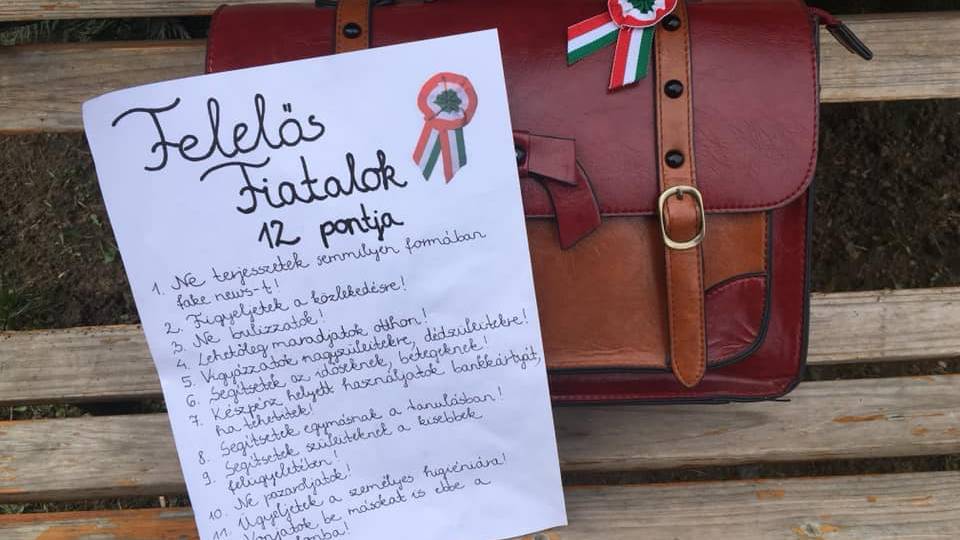 Felelős
Fiatalok
12 pontja
1. Ne terjesszetek semmilyen formában
fake news-t!
2. Figyeljetek a közlekedésre!
3. Ne bulizzatok!
4. Lehetőleg maradjatok otthon!
5. Vigyázzatok nagyszüleitekre, dédszüleitekre!
6. Segítsetek az időseknek, betegeknek!
7. Készpénz helyett használjatok bankkártyát,
ha tehetitek!
8. Segítsetek egymásnak a tanulásban!
9. Segítsetek szüleiteknek a kisebbek
felügyeletében!
10. Ne pazaroljatok!
11. Ügyeljetek a személyes higiéniára!
Vonjatok be másokat is ebbe a